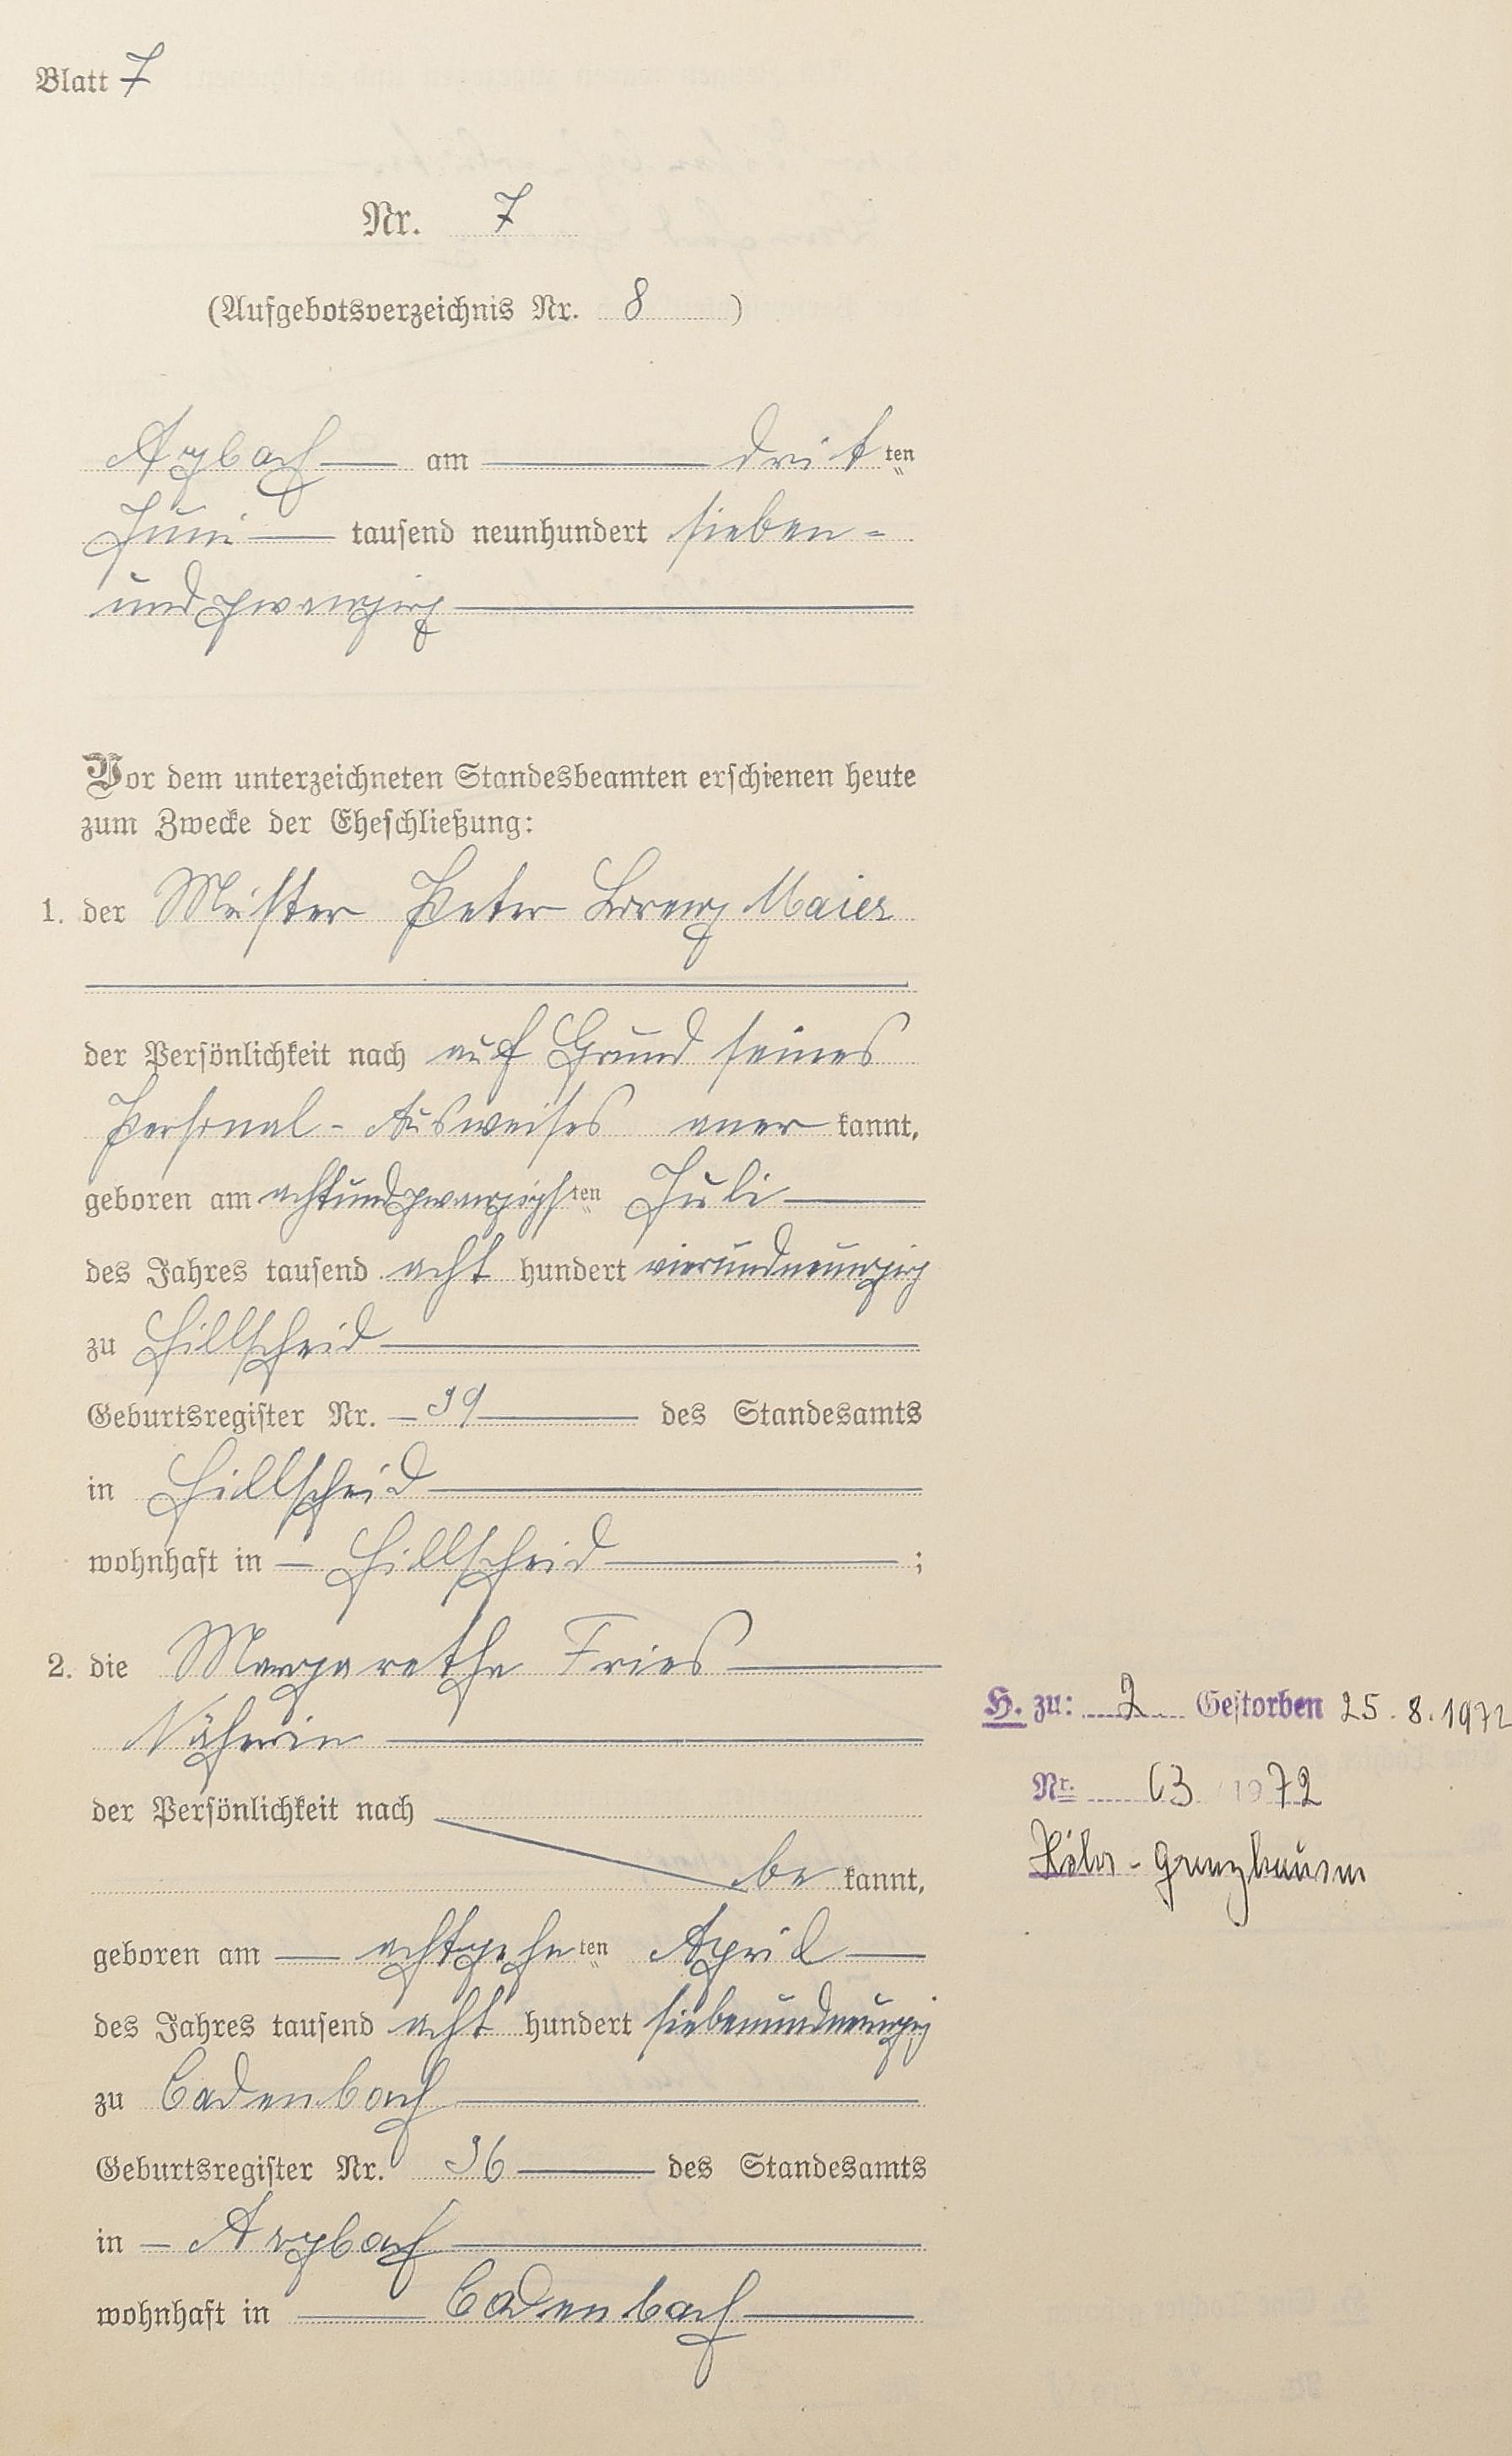 Blatt 7
Nr. 7
(Aufgebotsverzeichnis Nr. 8 )
Arzbach am dritten
Juni tausend neunhundert sieben-
undzwanzig
Vor dem unterzeichneten Standesbeamten erschienen heute
zum Zwecke der Eheschließung:
1. der Peter Lorenz Maier
der Persönlichkeit nach auf Grund seines
Personal-Ausweises anerkannt,
geboren am achtundzwanzigsten Juli
des Jahres tausend acht hundert vierundneunzig
zu Hillscheid
Geburtsregister Nr. 39 des Standesamts
in Hillscheid
wohnhaft in Hillscheid ;
2. die Margarethe Fries
Näherin
der Persönlichkeit nach
bekannt,
geboren am achtzehnten April
des Jahres tausend acht hundert siebenundneunzig
zu Cadenbach
Geburtsregister Nr. 36 des Standesamts
in Arzbach
wohnhaft in Cadenbach
H. zu: 2 Gestorben 25.8.1972
Nr. 63 1972
Höhr-Grenzhausen